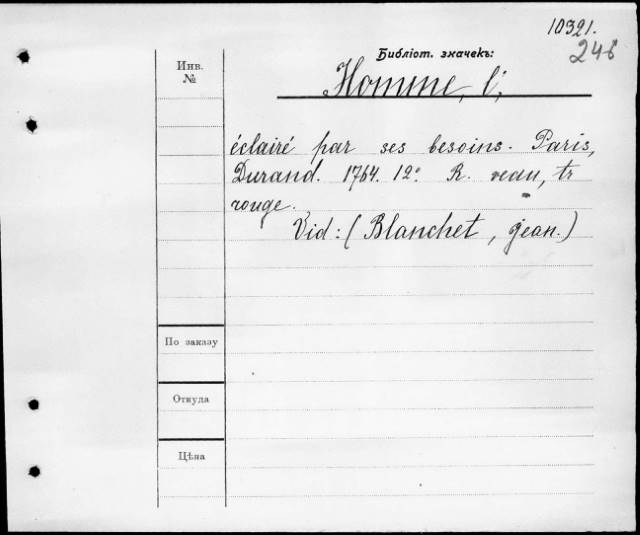 10321.
246
Библіот. значекъ:
Инв.
№
Homme, l',
éclairé par ses besoins. Paris,
Durand. 1764. 12º R. veau, tr
rouge.
Vid: (Blanchet, Jean.)
По заказу
Откуда
Цѣна